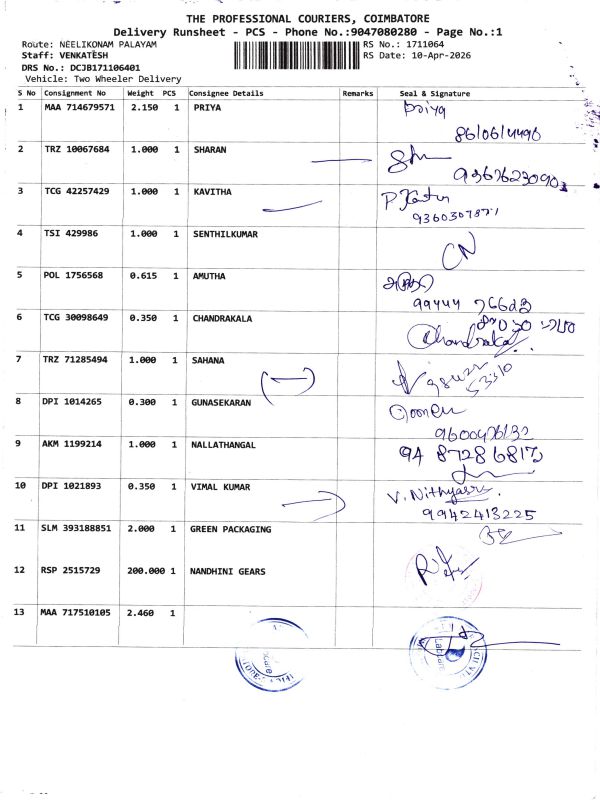 THE PROFESSIONAL COURIERS, COIMBATORE
Delivery Runsheet - PCS - Phone No.:9047080280 - Page No.:1
Route: NEELIKONAM PALAYAM RS No.: 1711064
Staff: VENKATESH RS Date: 10-Apr-2026
DRS No.: DCJB171106401
Vehicle: Two Wheeler Delivery
S No Consignment No Weight PCS Consignee Details Remarks Seal & Signature
1 MAA 714679571 2.150 1 PRIYA Priya
2 TRZ 10067684 1.000 1 SHARAN
3 TCG 42257429 1.000 1 KAVITHA
4 TSI 429986 1.000 1 SENTHILKUMAR
5 POL 1756568 0.615 1 AMUTHA
6 TCG 30098649 0.350 1 CHANDRAKALA Chandrakala
7 TRZ 71285494 1.000 1 SAHANA
8 DPI 1014265 0.300 1 GUNASEKARAN
9 AKM 1199214 1.000 1 NALLATHANGAL 94 87286817
10 DPI 1021893 0.350 1 VIMAL KUMAR V. Nithyasri
9942413225
11 SLM 393188851 2.000 1 GREEN PACKAGING
12 RSP 2515729 200.000 1 NANDHINI GEARS
13 MAA 717510105 2.460 1